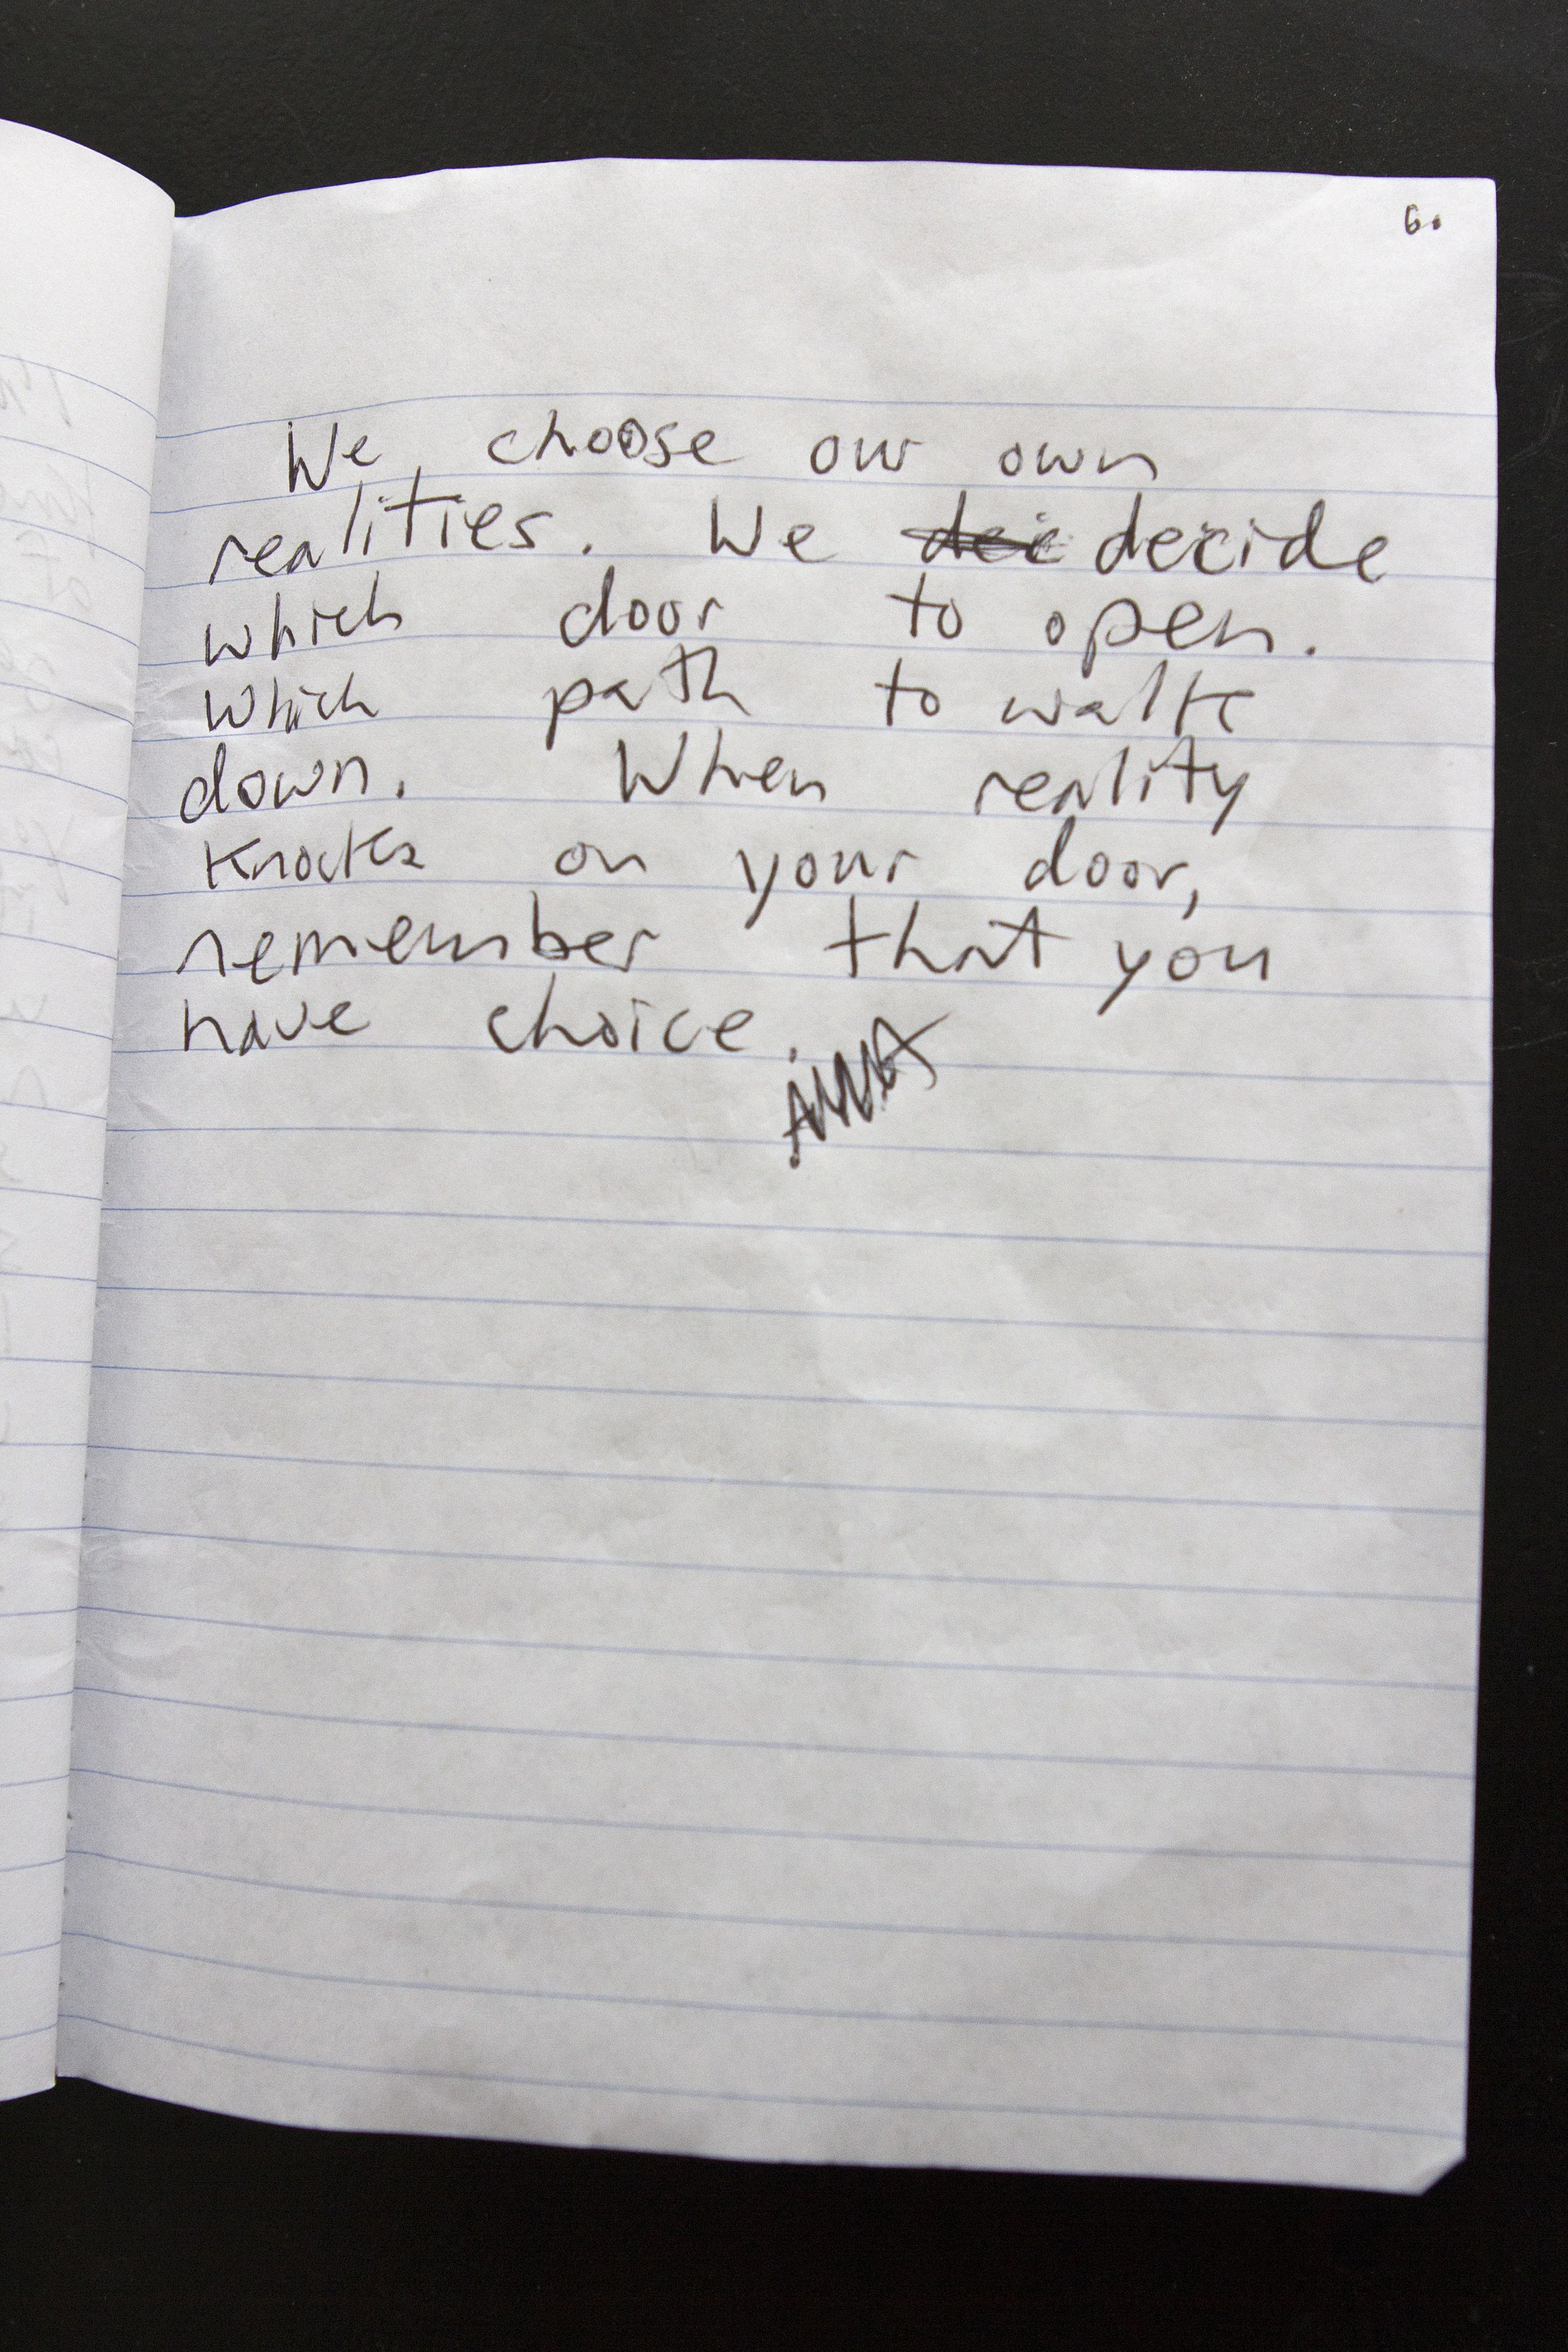 6.
We choose our own
realities. We dec decide
which door to open.
which path to walk
down. When reality
knocks on your door,
remember that you
have choice.